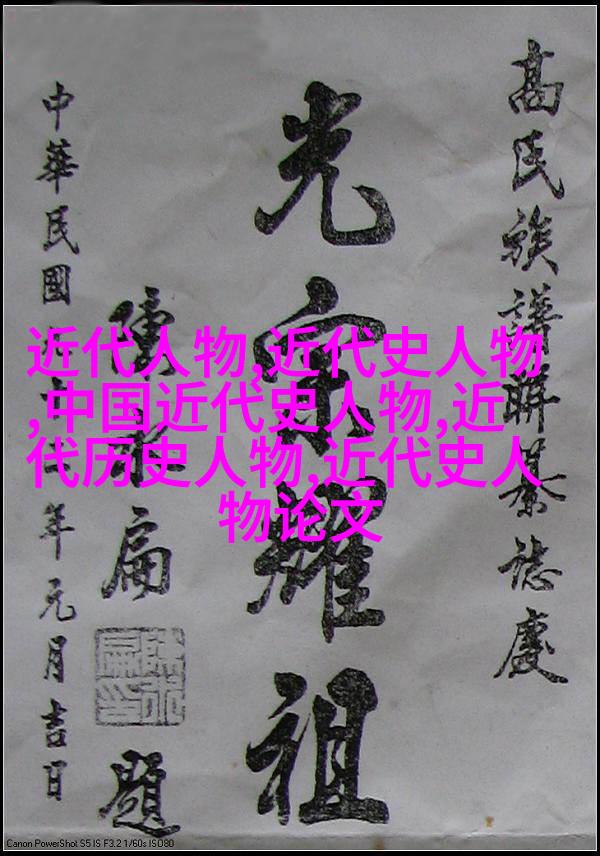 高氏族譜聯纂誌慶
光宗耀祖
陳水扁
題
中華民國
年元月吉日
近代人物,近代史人物
,中国近代史人物,近
代历史人物,近代史人
物论文
Canon PowerShot S5 IS F3.2 1/60s ISO80